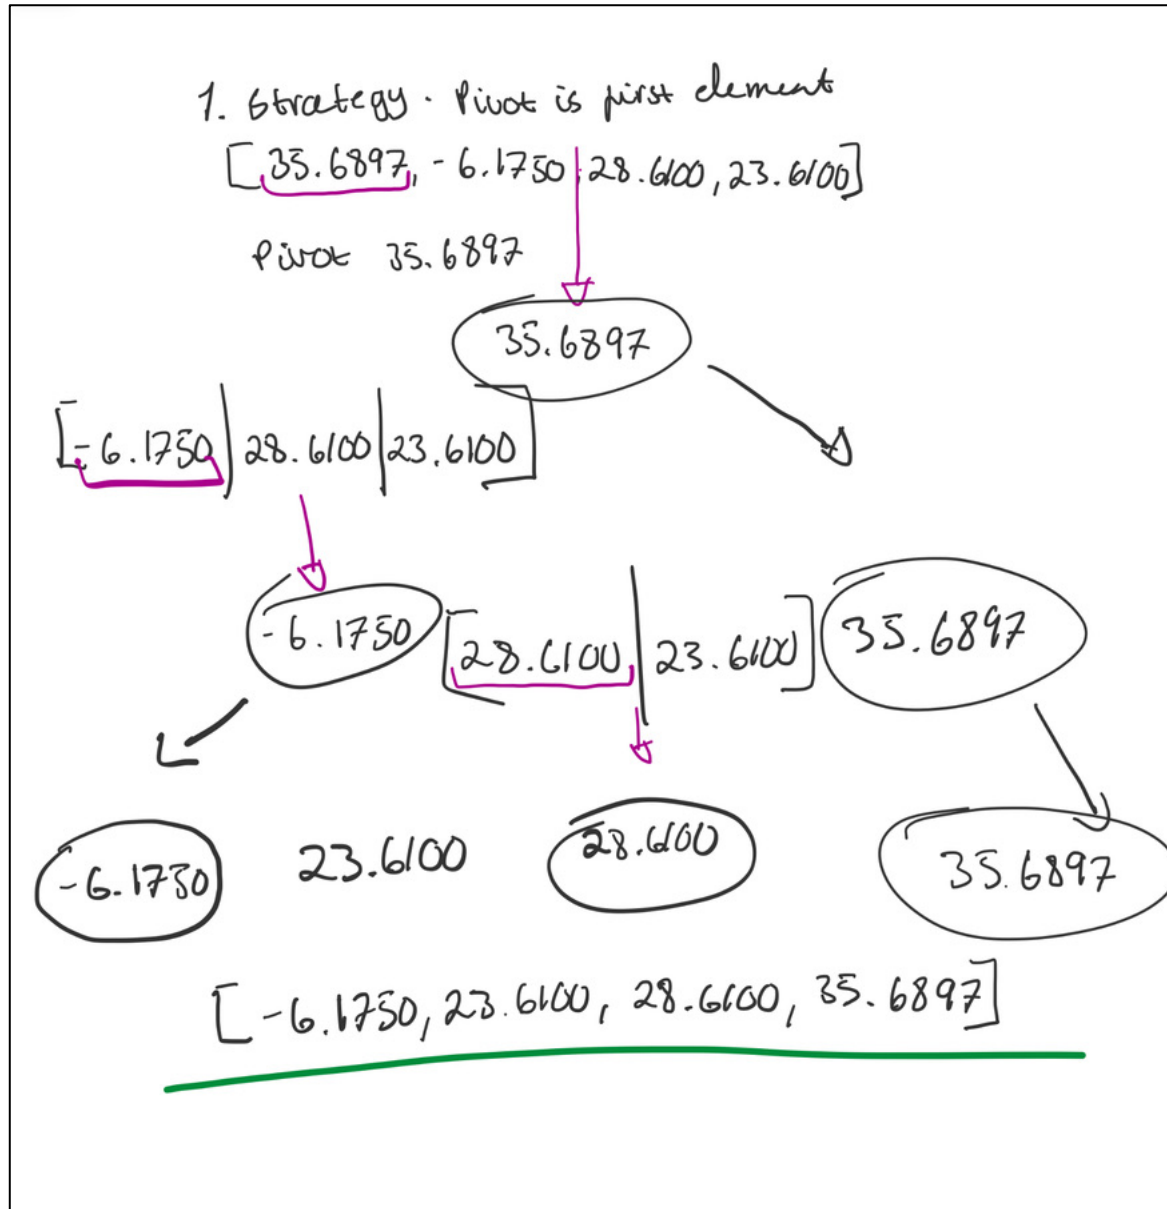 1. Strategy. Pivot is first element
[35.6897, -6.1750, 28.6100, 23.6100]
Pivot 35.6897
35.6897
[-6.1750 | 28.6100 | 23.6100]
-6.1750 [28.6100 | 23.6100] 35.6897
-6.1750 23.6100 28.6100 35.6897
[-6.1750, 23.6100, 28.6100, 35.6897]